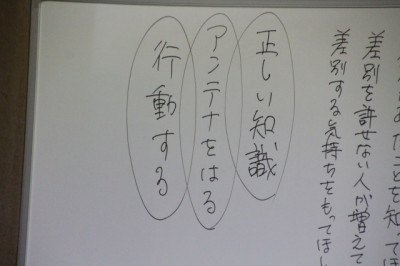 差別を許せない人が増えて
差別する気持ちをもってほし
正しい知識
アンテナをはる
行動する